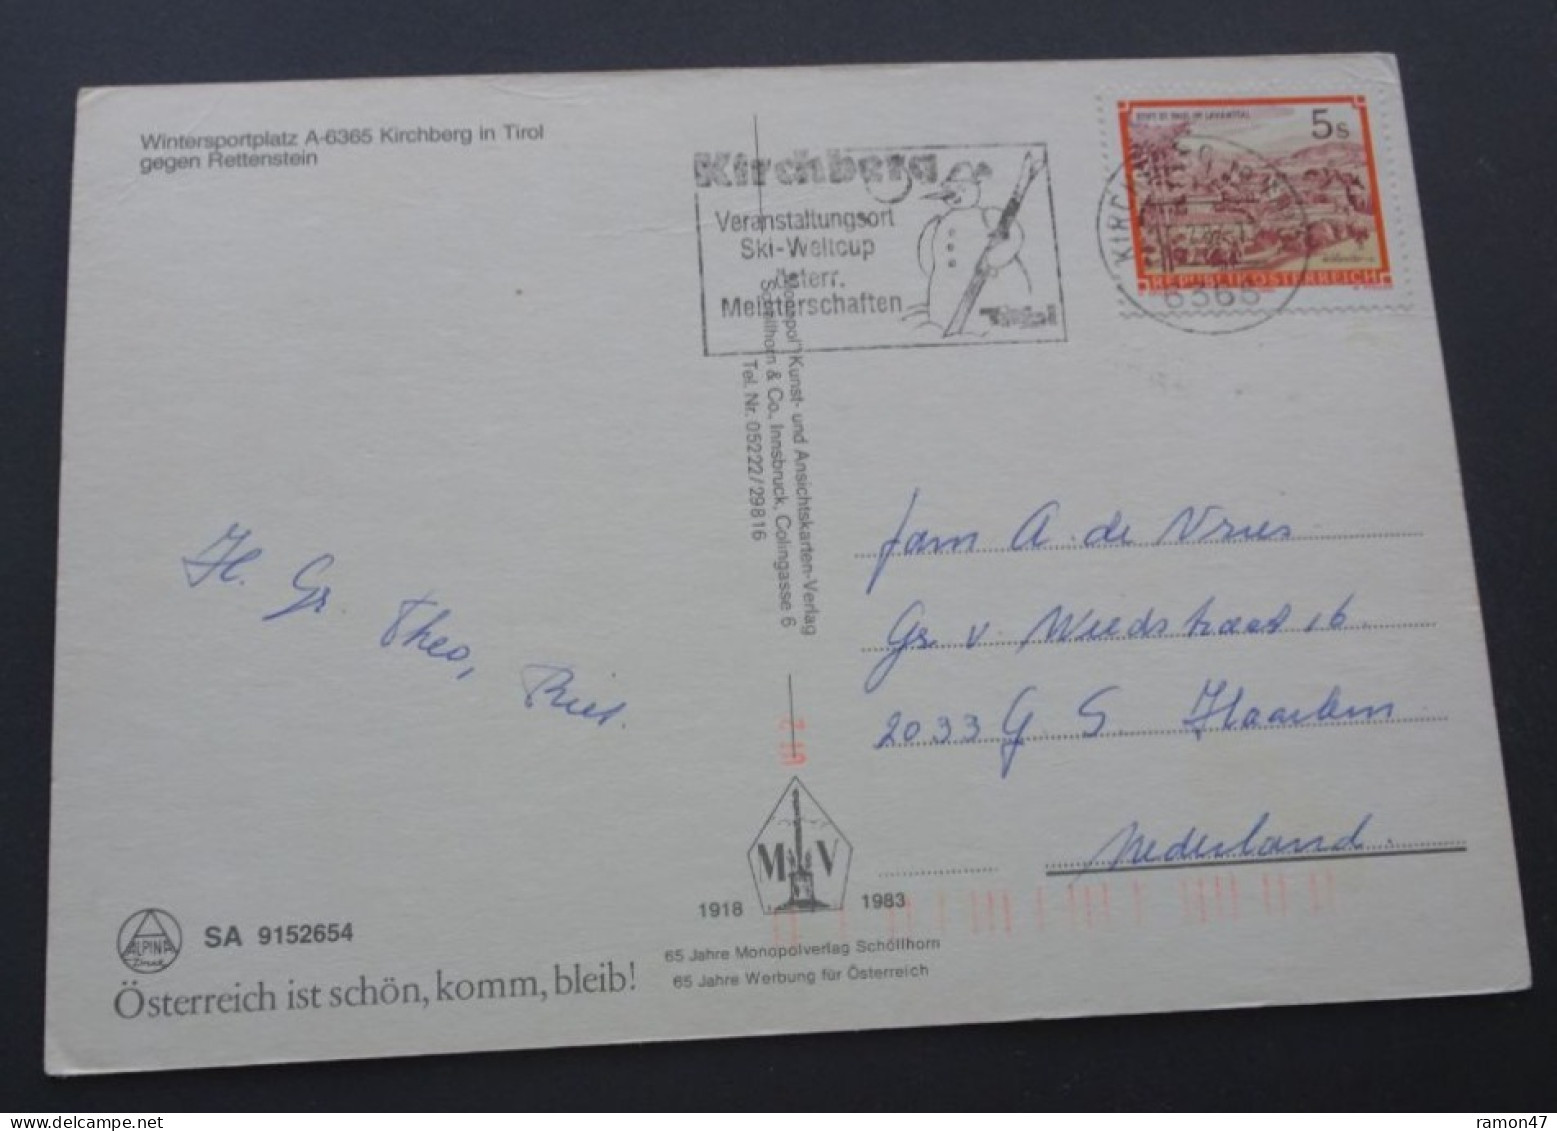 Wintersportplatz A-6365 Kirchberg in Tirol
gegen Rettenstein
Kirchberg
Veranstaltungsort
Ski-Weltcup
österr.
Meisterschaften
STIFT ST. PAUL IM LAVANTTAL
5 s
REPUBLIK ÖSTERREICH
6365
"Monopol" Kunst- und Ansichtskarten-Verlag
Schöllhorn & Co., Innsbruck, Colingasse 6
Tel. Nr. 05222/29816
H. Gr. Theo, Riet.
Fam A. de Vries
Gr v Weedstraat 16
2033 G S Haarlem
Nederland.
M V
1918 1983
65 Jahre Monopolverlag Schöllhorn
65 Jahre Werbung für Österreich
ALPINA
Druck
SA 9152654
Österreich ist schön, komm, bleib!
ramon47